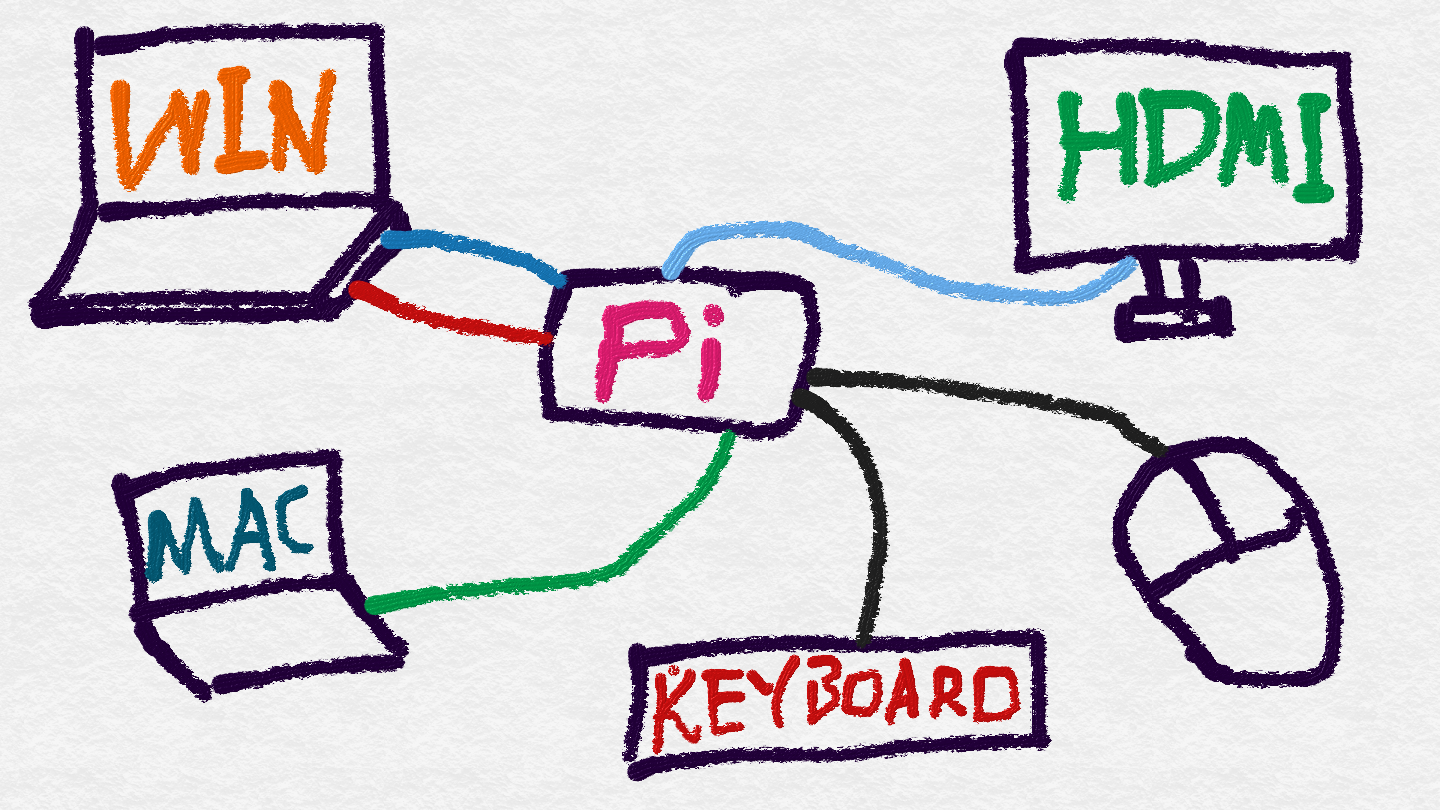 WIN
HDMI
Pi
MAC
KEYBOARD